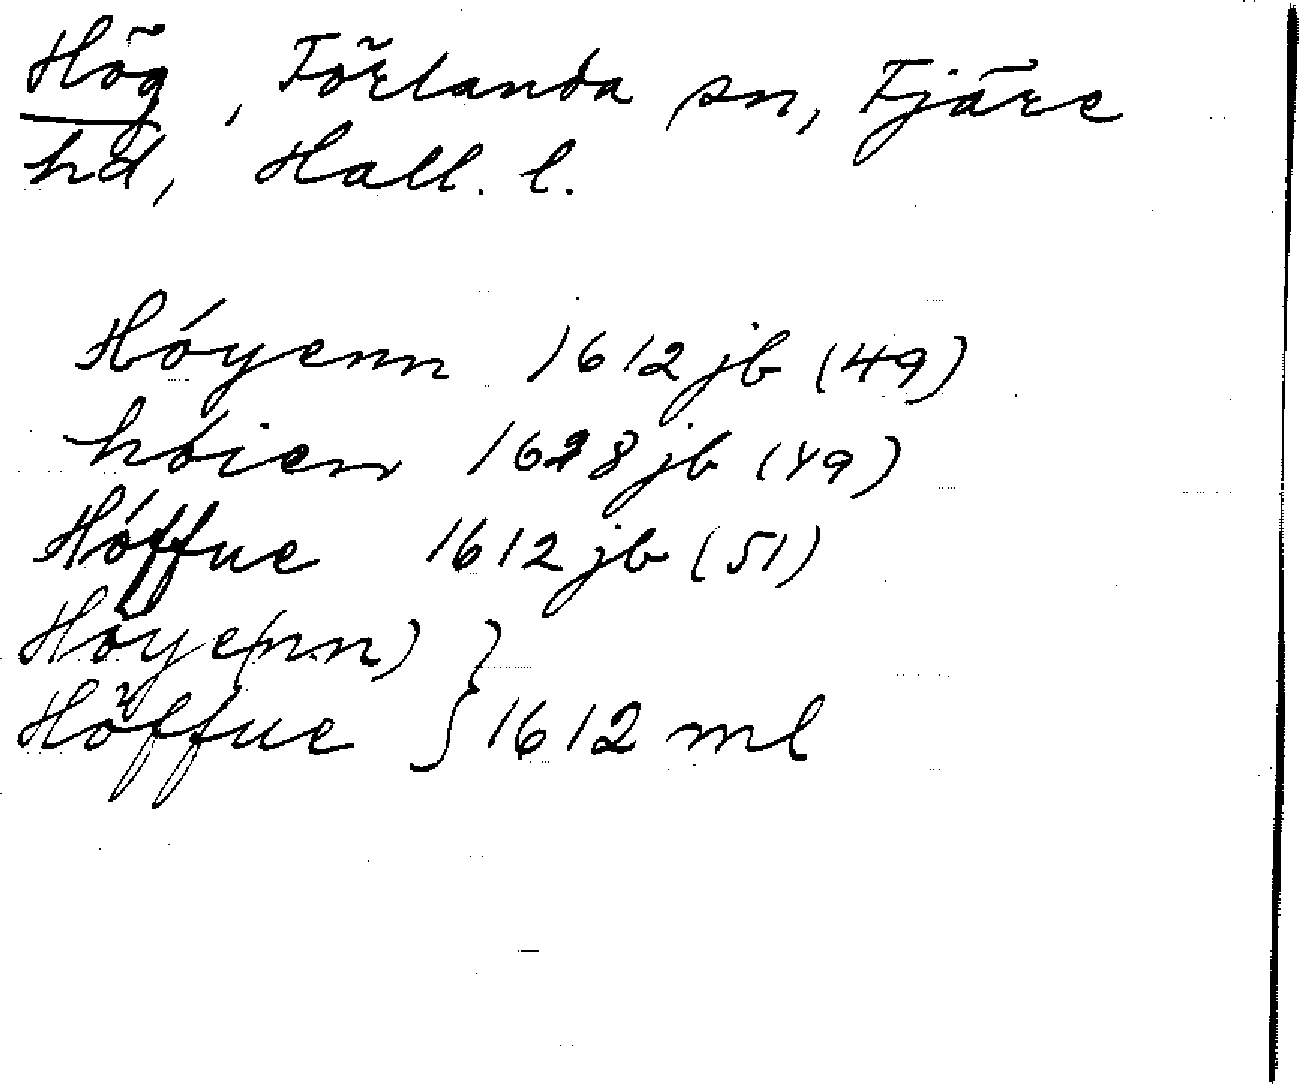 Hög, Förlanda sn, Fjäre
hd, Hall. l.
Hóyenn 1612 jb (49)
hóien 1628 jb (49)
Hóffue 1612 jb (51)
Höye(nn)
Höffue } 1612 ml